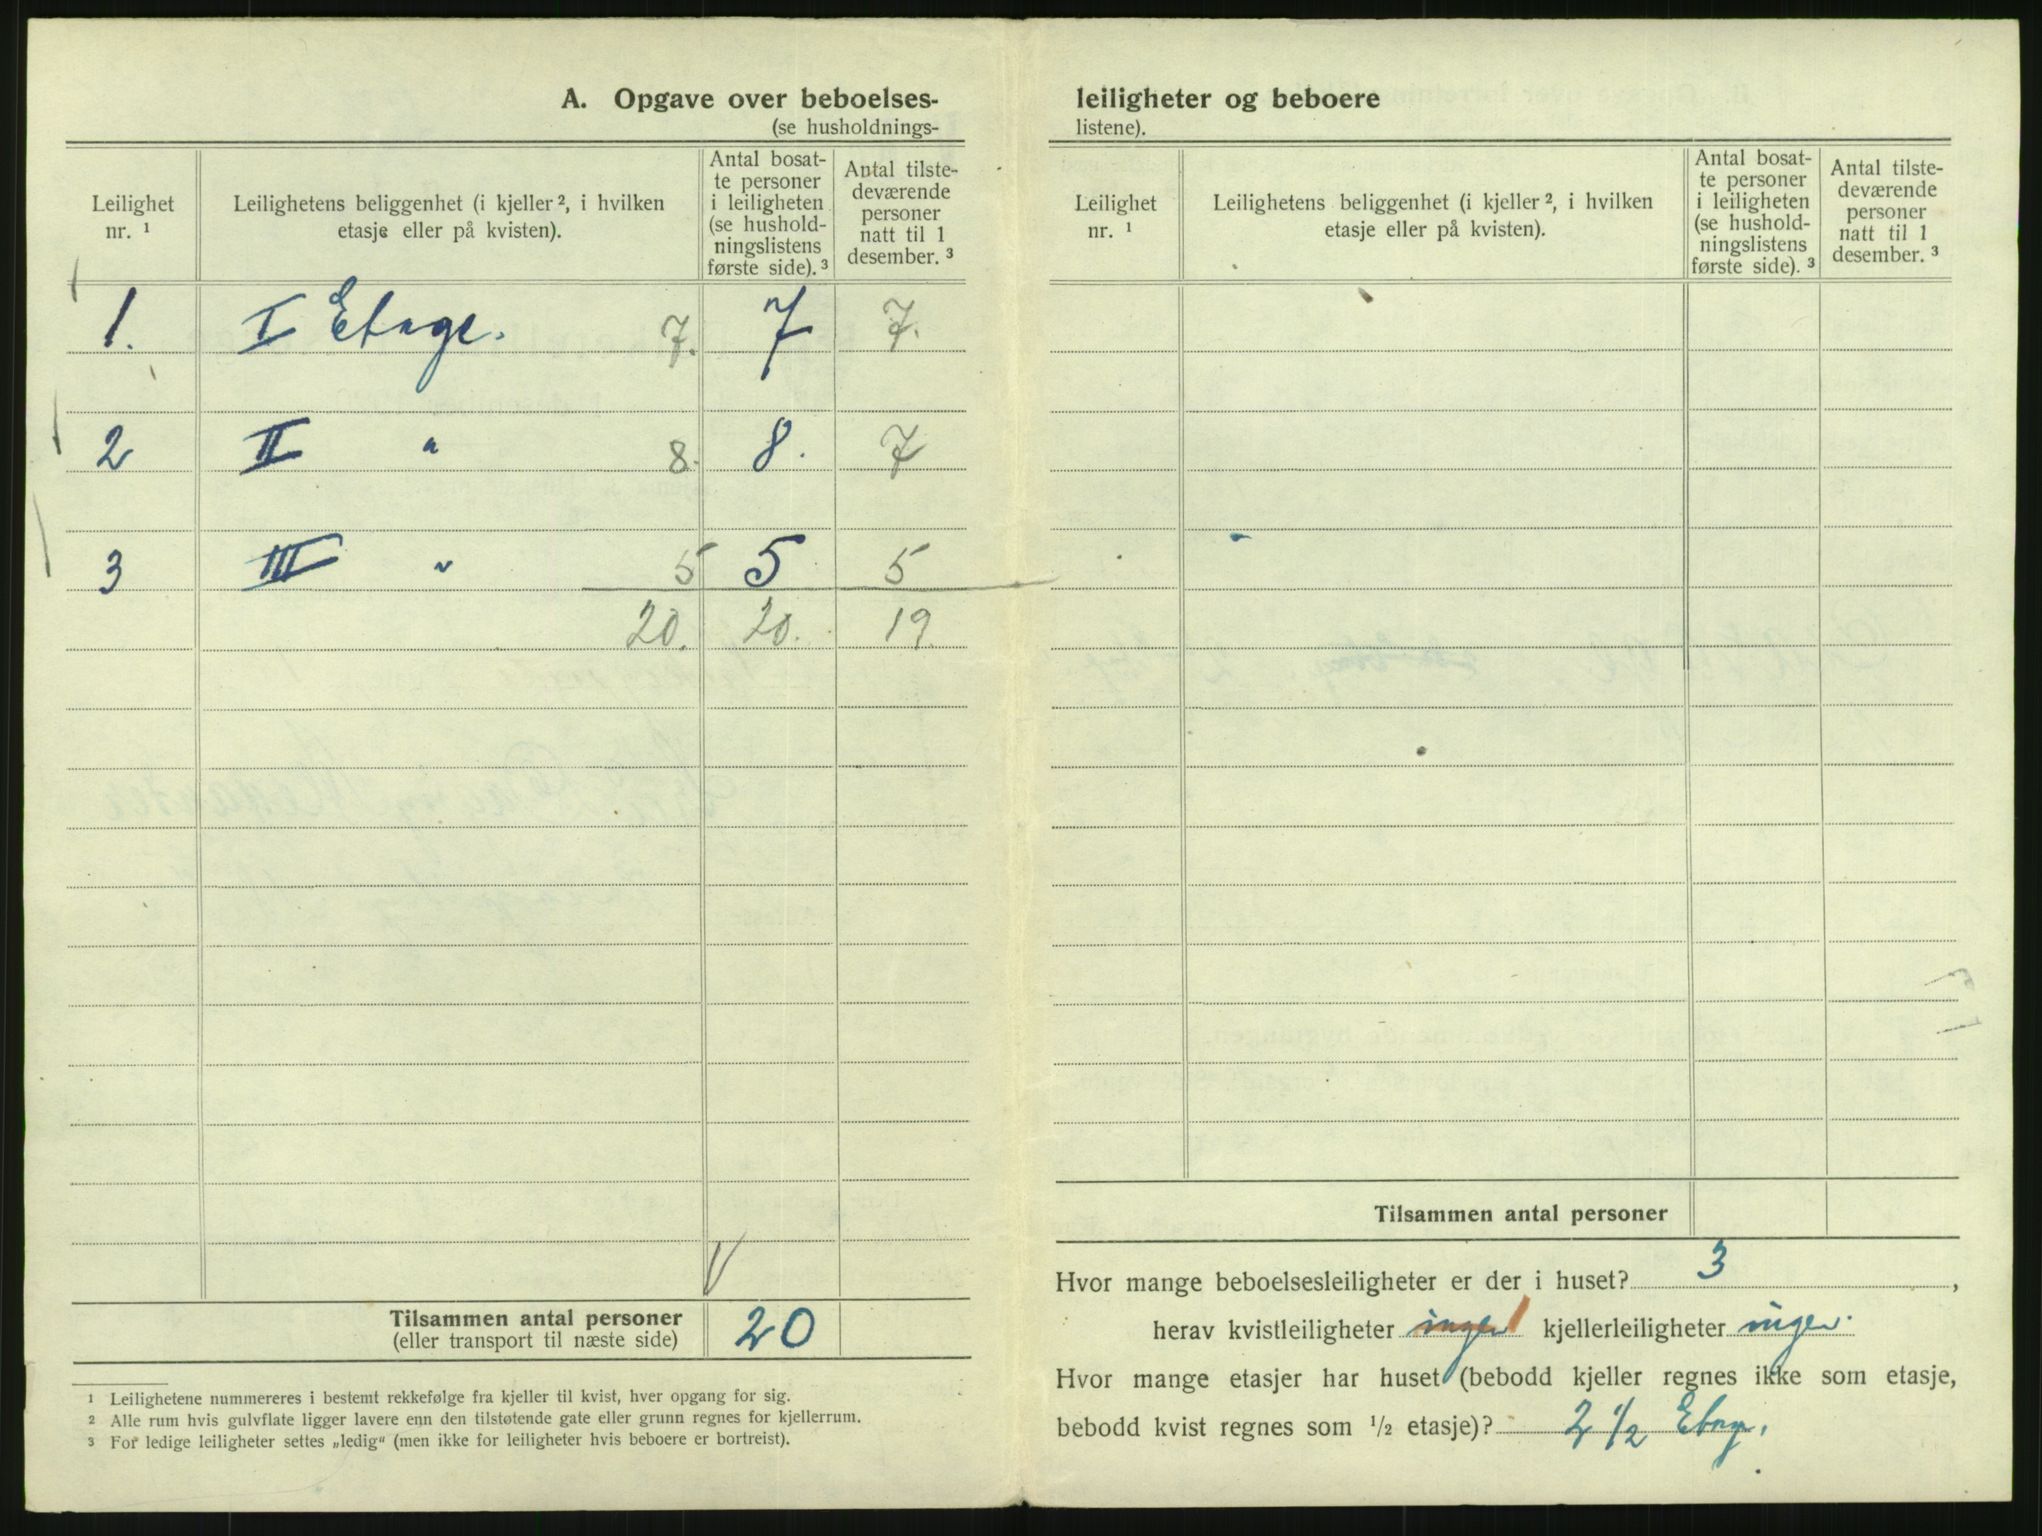 A. Opgave over beboelses-
(se husholdnings-
Leilighet nr. ¹
Leilighetens beliggenhet (i kjeller ², i hvilken etasje eller på kvisten).
Antal bosat-
te personer
i leiligheten
(se hushold-
ningslistens
første side). ³
Antal tilste-
deværende
personer
natt til 1
desember. ³
1. I Etage. 7. 7 7.
2 II " 8. 8. 7
3 III " 5 5 5
20. 20. 19.
V
Tilsammen antal personer 20
(eller transport til næste side)
¹ Leilighetene nummereres i bestemt rekkefølge fra kjeller til kvist, hver opgang for sig.
² Alle rum hvis gulvflate ligger lavere enn den tilstøtende gate eller grunn regnes for kjellerrum.
³ For ledige leiligheter settes „ledig" (men ikke for leiligheter hvis beboere er bortreist).
leiligheter og beboere
listene).
Leilighet nr. ¹
Leilighetens beliggenhet (i kjeller ², i hvilken etasje eller på kvisten).
Antal bosat-
te personer
i leiligheten
(se hushold-
ningslistens
første side). ³
Antal tilste-
deværende
personer
natt til 1
desember. ³
Tilsammen antal personer
Hvor mange beboelsesleiligheter er der i huset? 3 ,
herav kvistleiligheter ingen 1 kjellerleiligheter ingen.
Hvor mange etasjer har huset (bebodd kjeller regnes ikke som etasje,
bebodd kvist regnes som ½ etasje)? 2 ½ Etage.